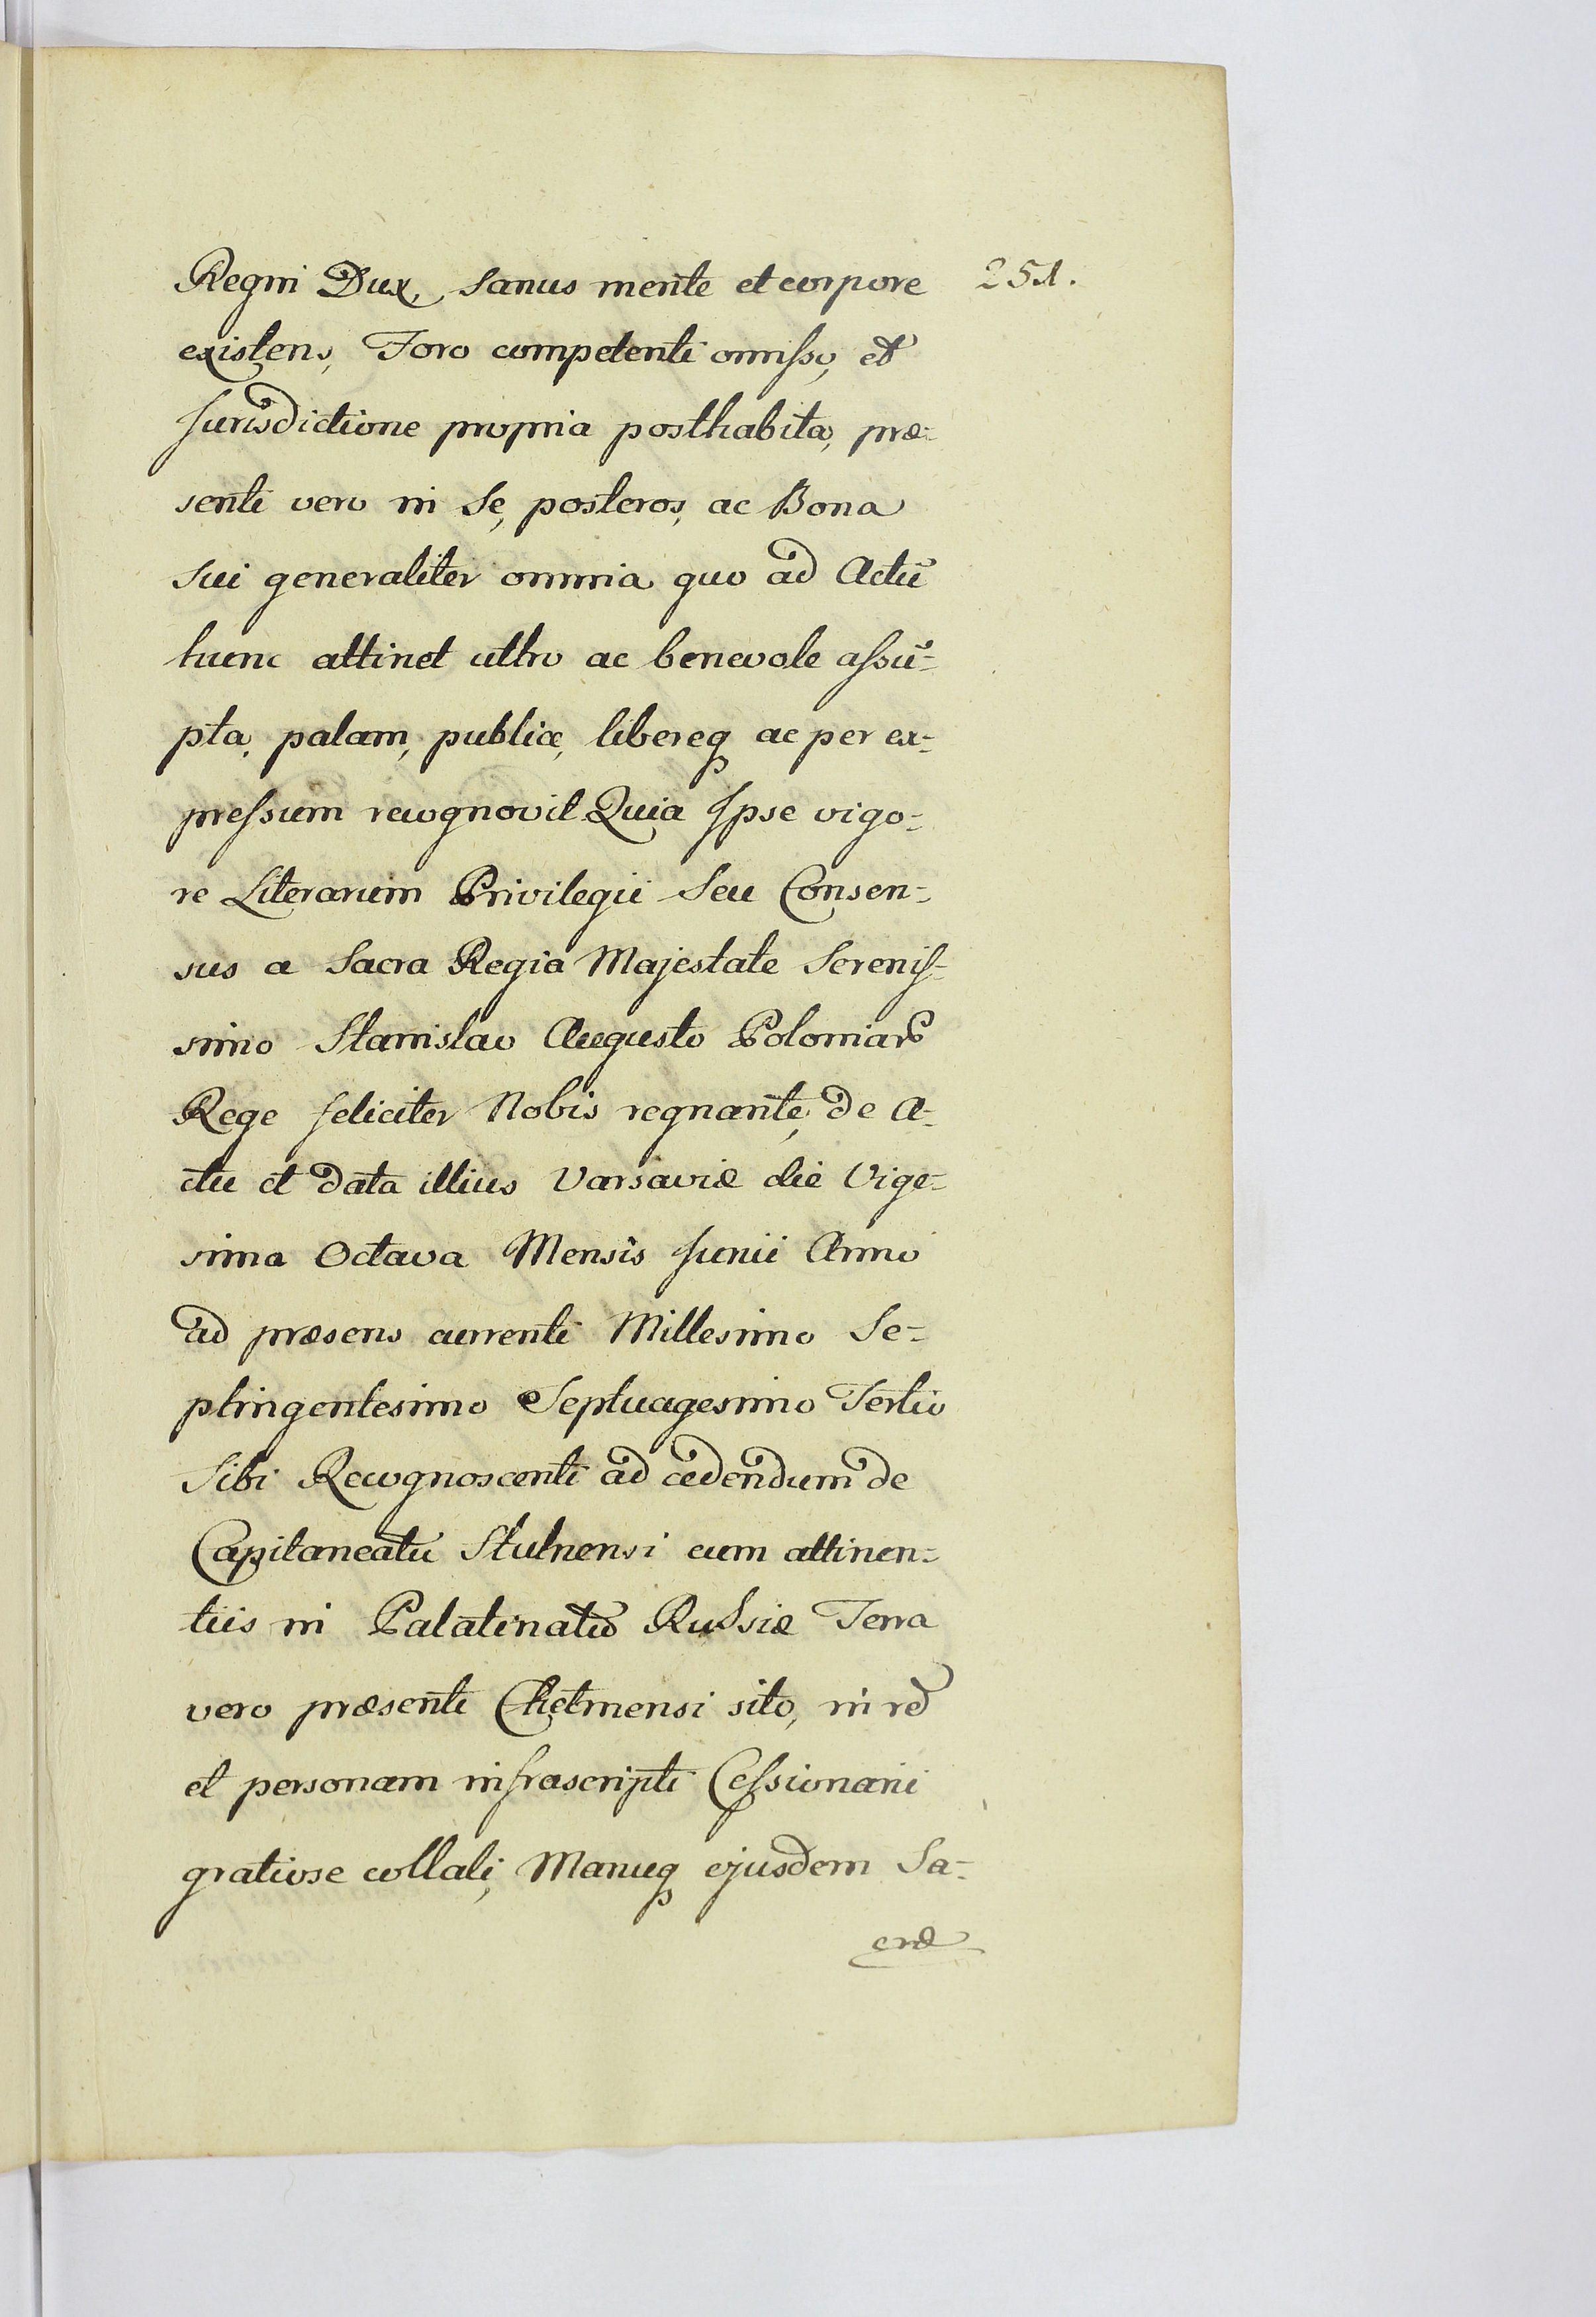 Regni Dux, Sanus mente et corpore 251.
existens, Foro competenti omisso, et
Jurisdictione propria posthabita, præ-
senti vero in Se, posteros, ac Bona
sui generaliter omnia quo ad Actū
hunc attinet ultro ac benevole assū-
pta, palam, publice, libereq ac per ex-
pressum recognovit Quia Ipse vigo-
re Literarum Privilegii Seu Consen-
sus a Sacra Regia Majestate Serenis-
simo Stanislao Augusto Poloniarꝝ
Rege feliciter Nobis regnante, de A-
ctu et data illius Varsaviæ die Vige-
sima Octava Mensis Junii Anno
ad præsens currenti Millesimo Se-
ptingentesimo Septuagesimo Tertio
Sibi Recognoscenti ad cedendum de
Capitaneatu Stulnensi cum attinen-
tiis in Palatinatu Russiæ Terra
vero præsenti Chełmensi sito, in rē
et personam infrascripti Cessionarii
gratiose collati, Manuq ejusdem Sa-
cræ